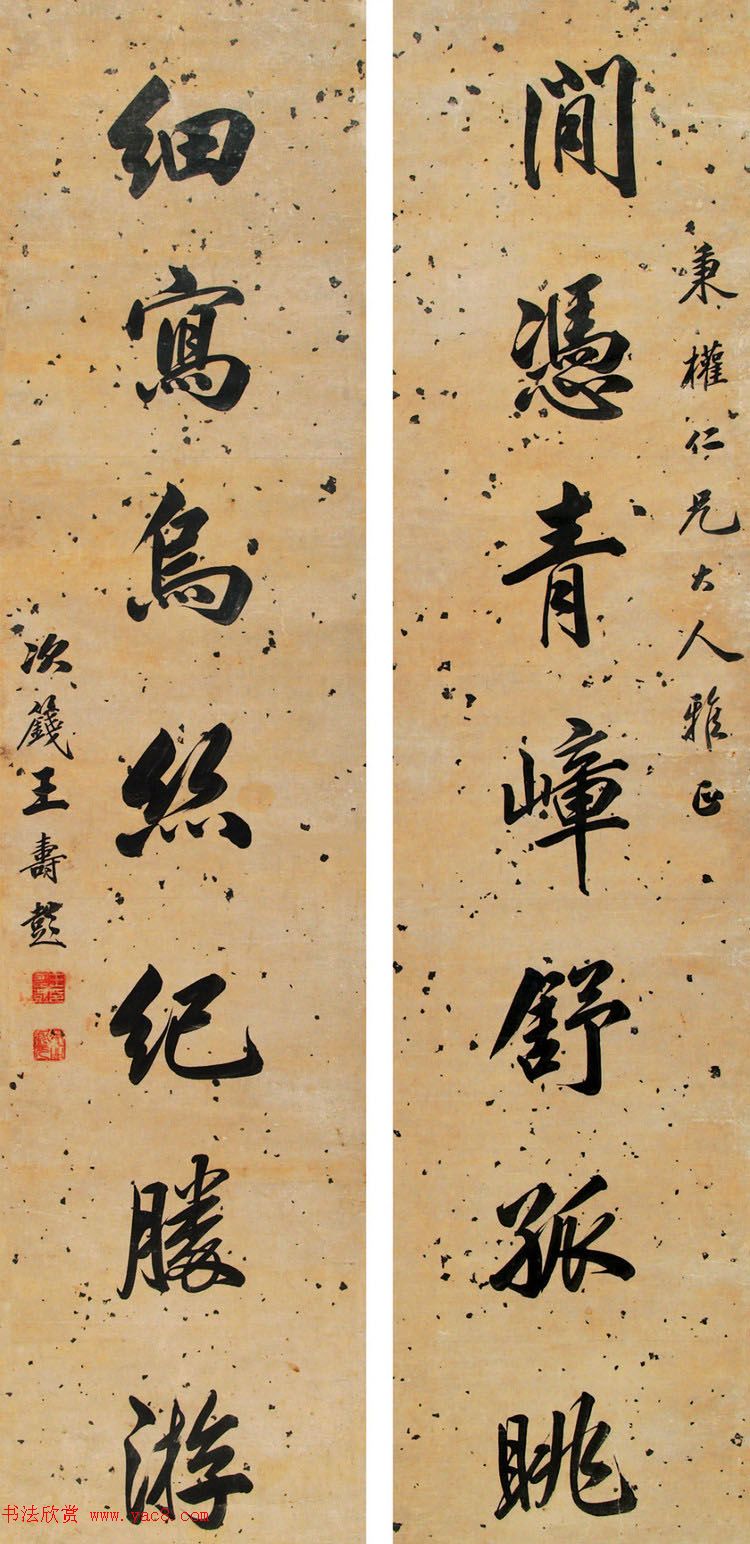 秉權仁兄大人雅正
閒憑青嶂舒孤眺
細寫烏絲紀勝游
次籛王壽彭
书法欣赏 www.yac8.com